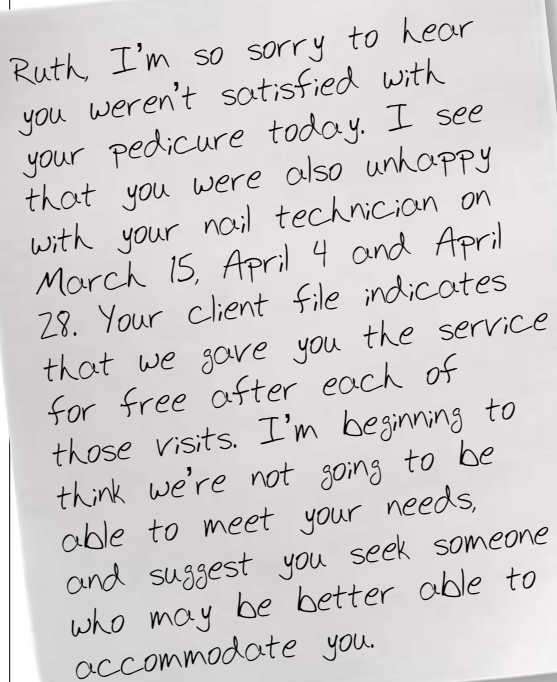 Ruth, I'm so sorry to hear
you weren't satisfied with
your pedicure today. I see
that you were also unhappy
with your nail technician on
March 15, April 4 and April
28. Your client file indicates
that we gave you the service
for free after each of
those visits. I'm beginning to
think we're not going to be
able to meet your needs,
and suggest you seek someone
who may be better able to
accommodate you.